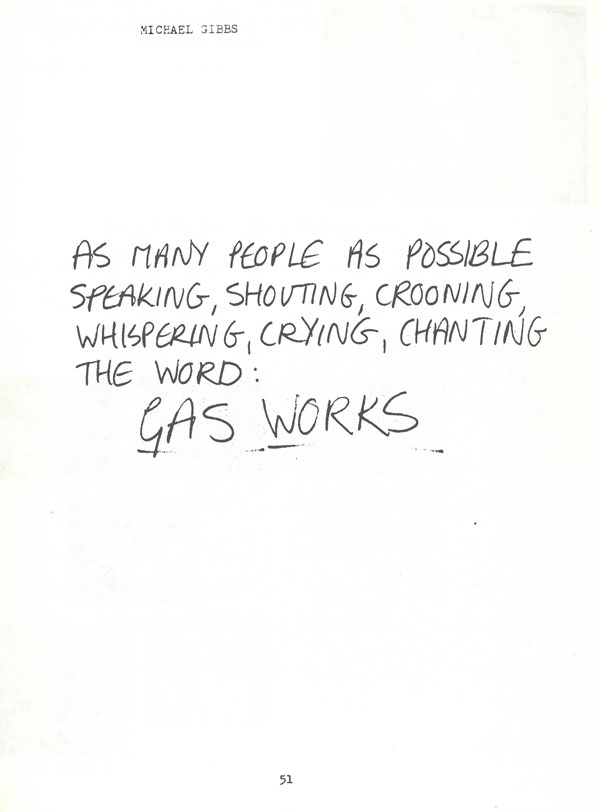 MICHAEL GIBBS
AS MANY PEOPLE AS POSSIBLE
SPEAKING, SHOUTING, CROONING,
WHISPERING, CRYING, CHANTING
THE WORD:
GAS WORKS
51